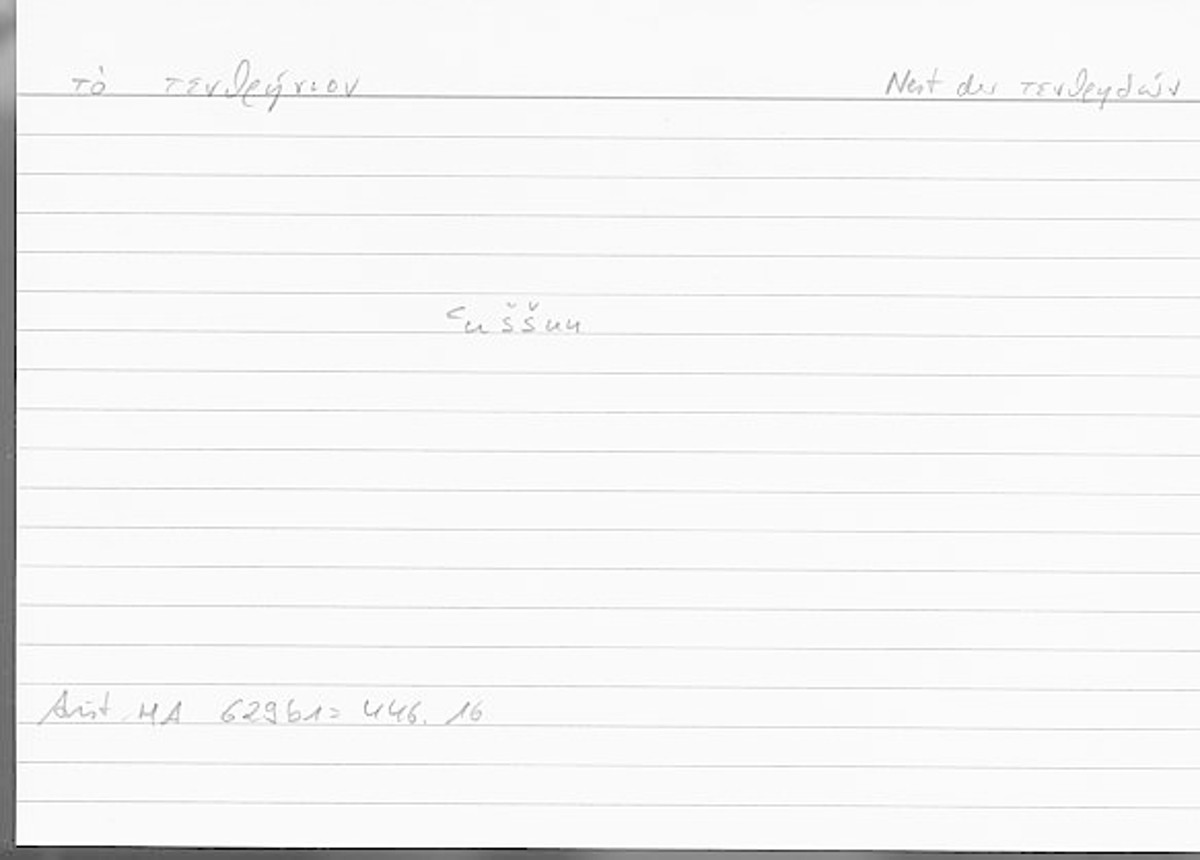 τὸ τενθρήνιον Nest der τενθρηδών
ʿuššun
Arist HA 629b1 = 446. 16